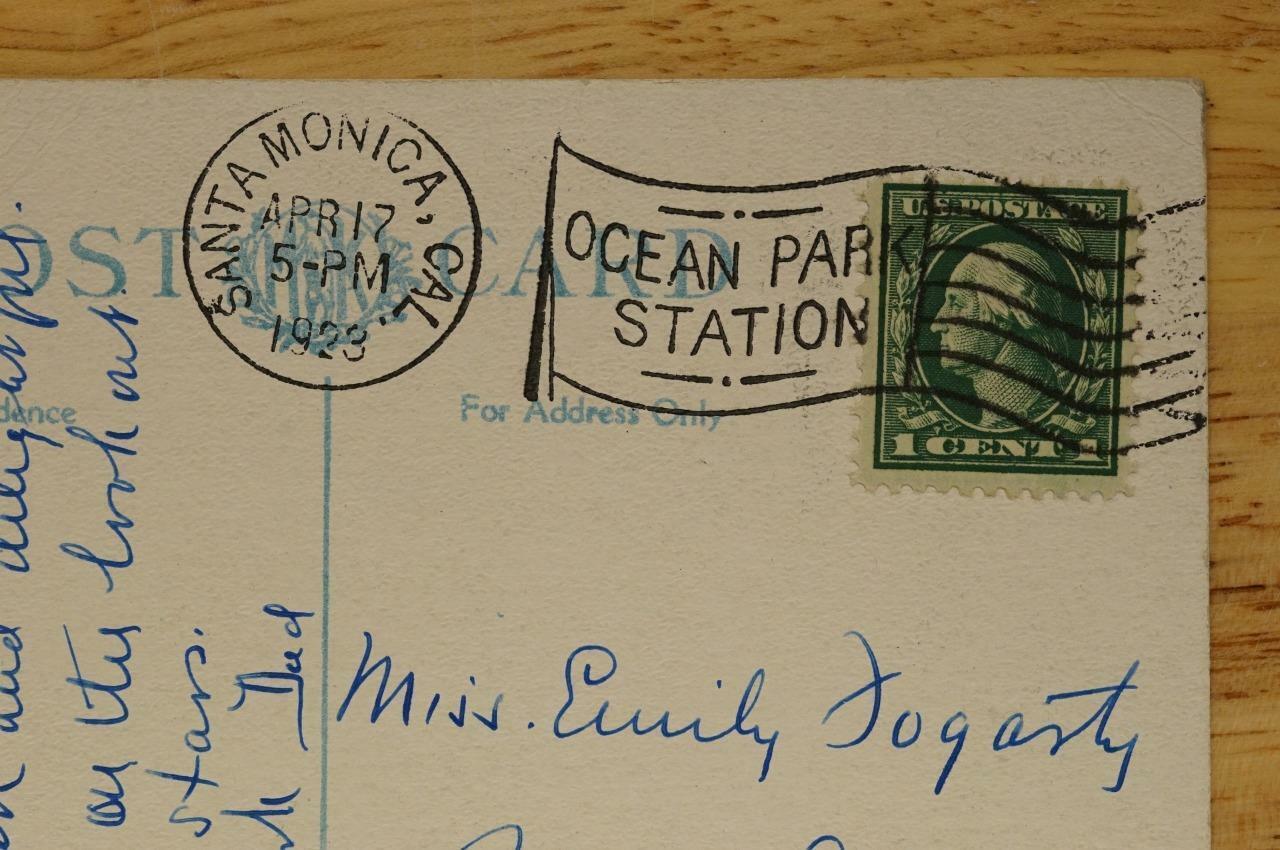 SANTA MONICA, CAL.
APR 17
5-PM
1923
OCEAN PARK
STATION
U.S. POSTAGE
1 CENT 1
POST CARD
dence
For Address Only
and delightful.
on the look out
stars.
Dad
Miss. Emily Fogarty